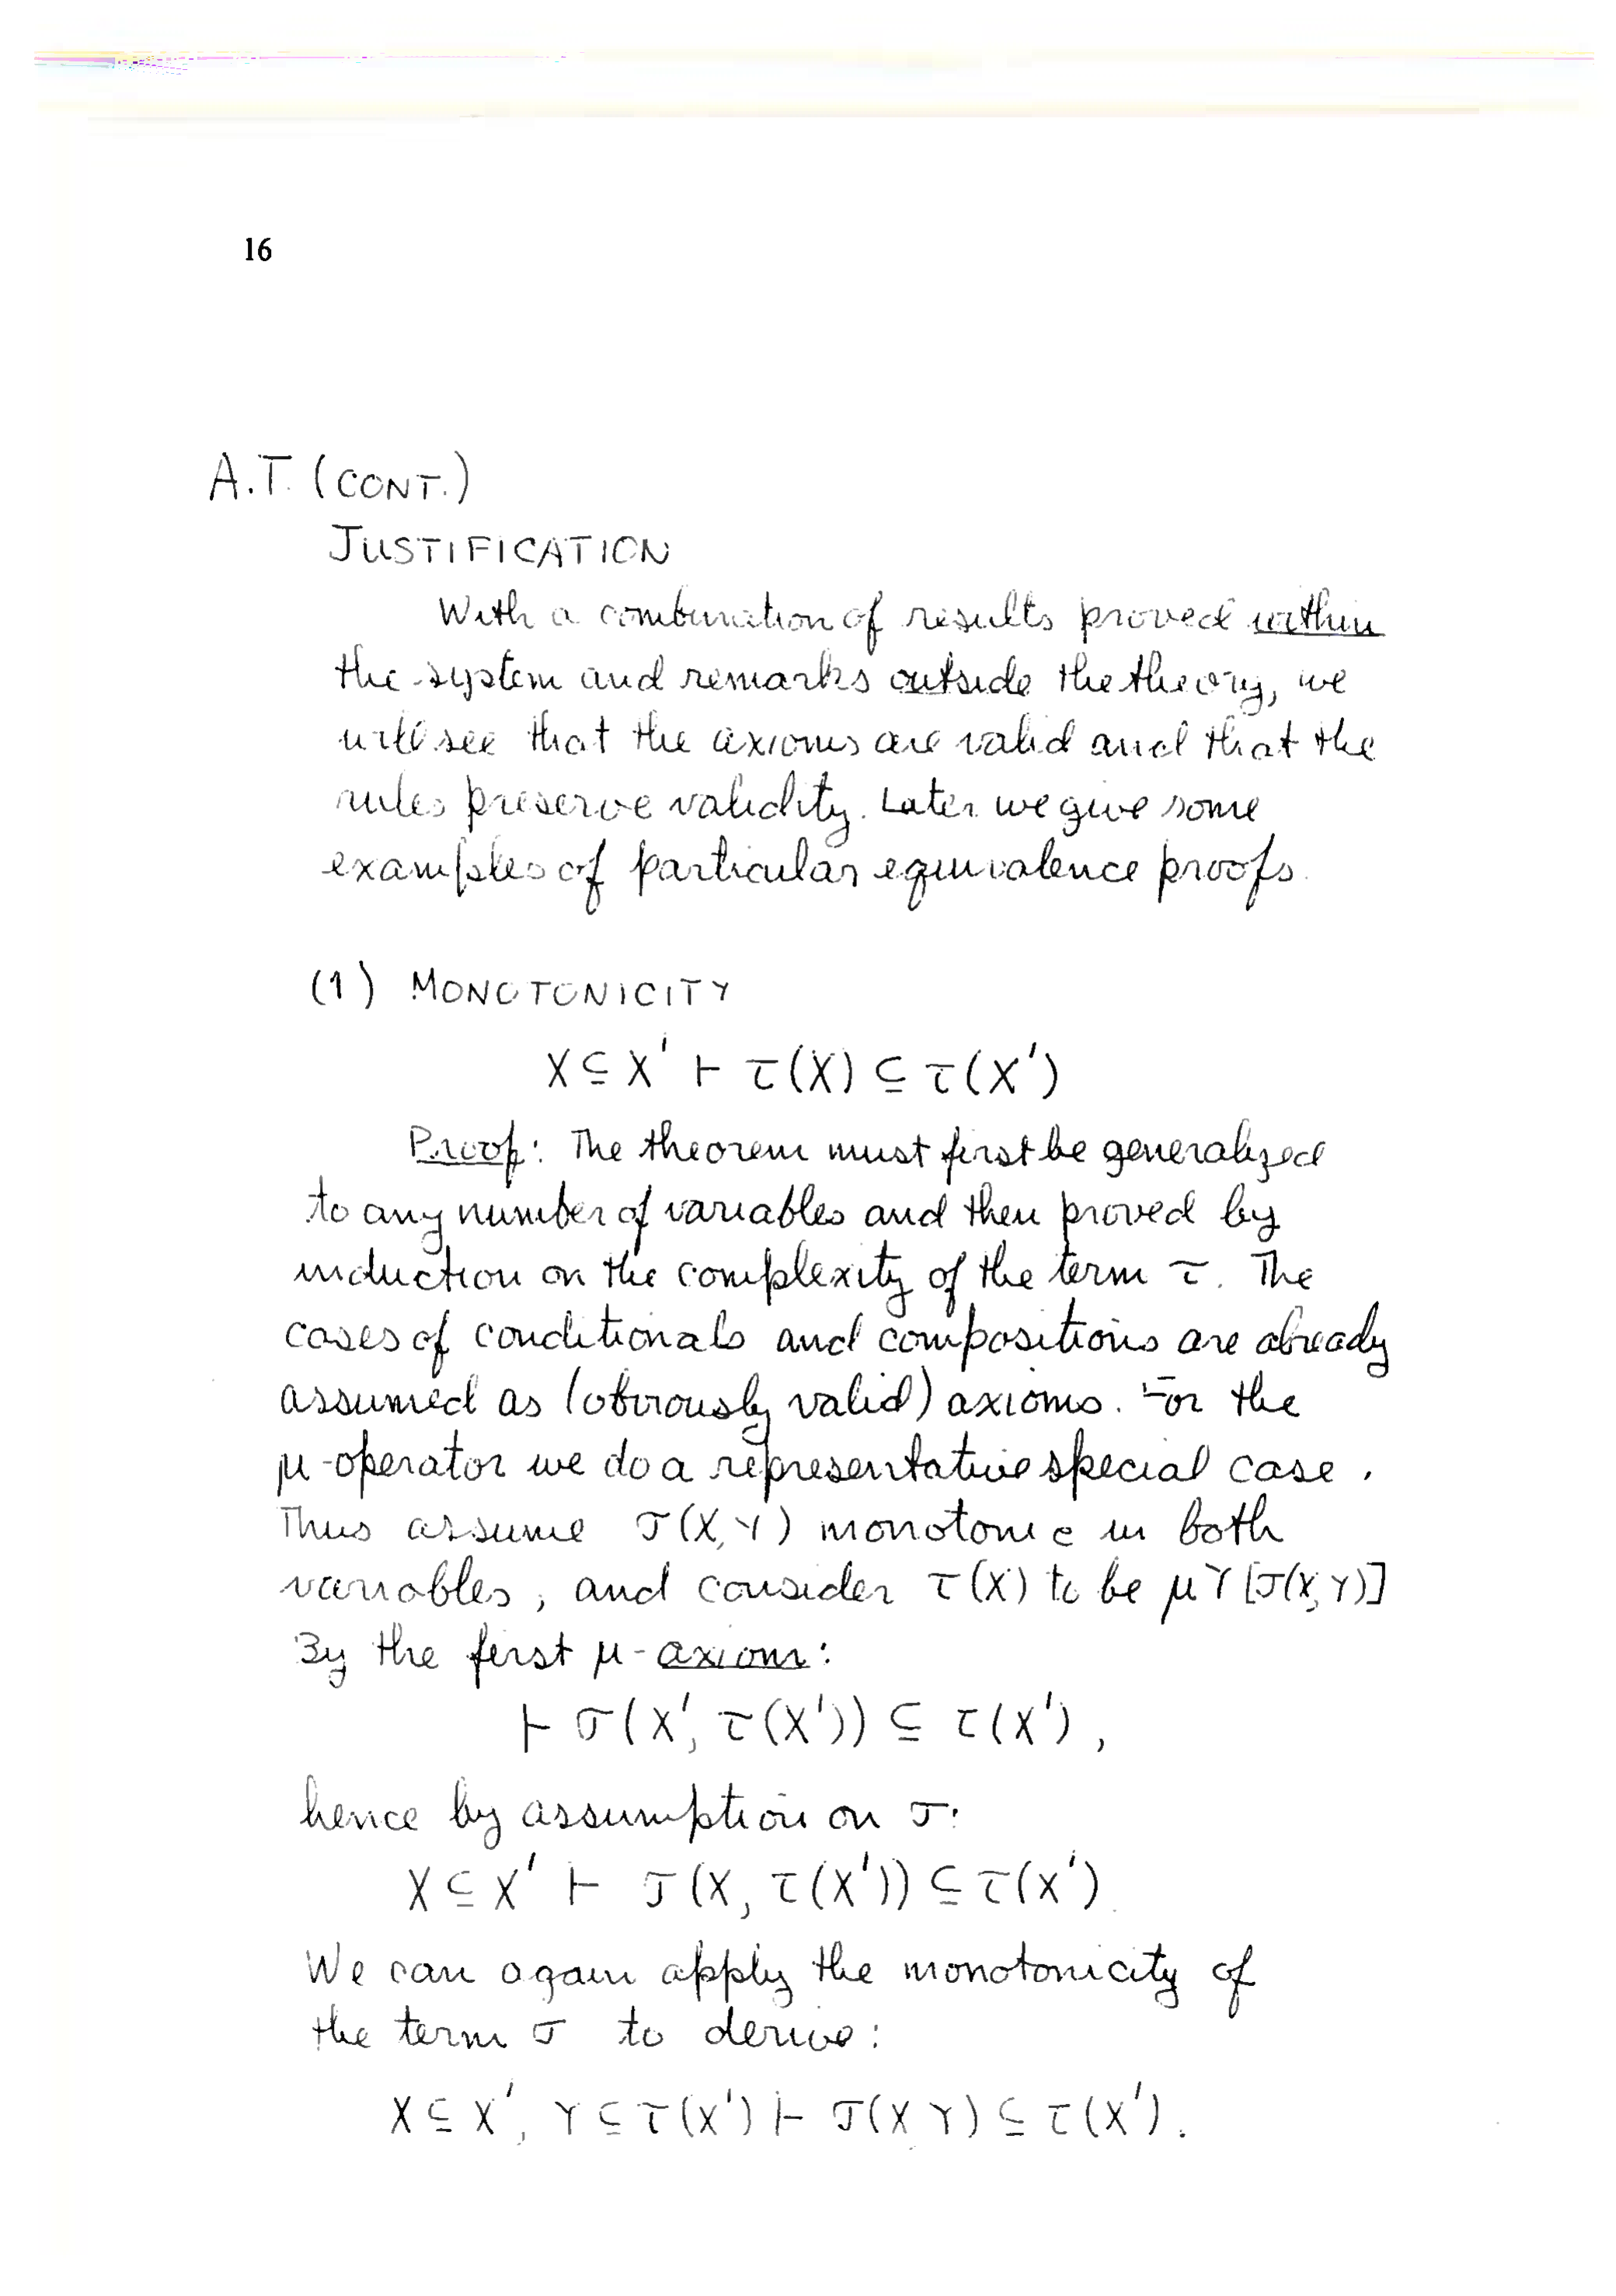 16
A.T. (CONT.)
JUSTIFICATION
With a combination of results proved within
the system and remarks outside the theory, we
will see that the axioms are valid and that the
rules preserve validity. Later we give some
examples of particular equivalence proofs.
(1) MONOTONICITY
X ⊆ X' ⊢ τ(X) ⊆ τ(X')
Proof: The theorem must first be generalized
to any number of variables and then proved by
induction on the complexity of the term τ. The
cases of conditionals and compositions are already
assumed as (obviously valid) axioms. For the
μ-operator we do a representative special case.
Thus assume σ(X,Y) monotonic in both
variables, and consider τ(X) to be μY[σ(X,Y)]
By the first μ-axiom:
⊢ σ(X', τ(X')) ⊆ τ(X'),
hence by assumption on σ:
X ⊆ X' ⊢ σ(X, τ(X')) ⊆ τ(X').
We can again apply the monotonicity of
the term σ to derive:
X ⊆ X', Y ⊆ τ(X') ⊢ σ(X Y) ⊆ τ(X').